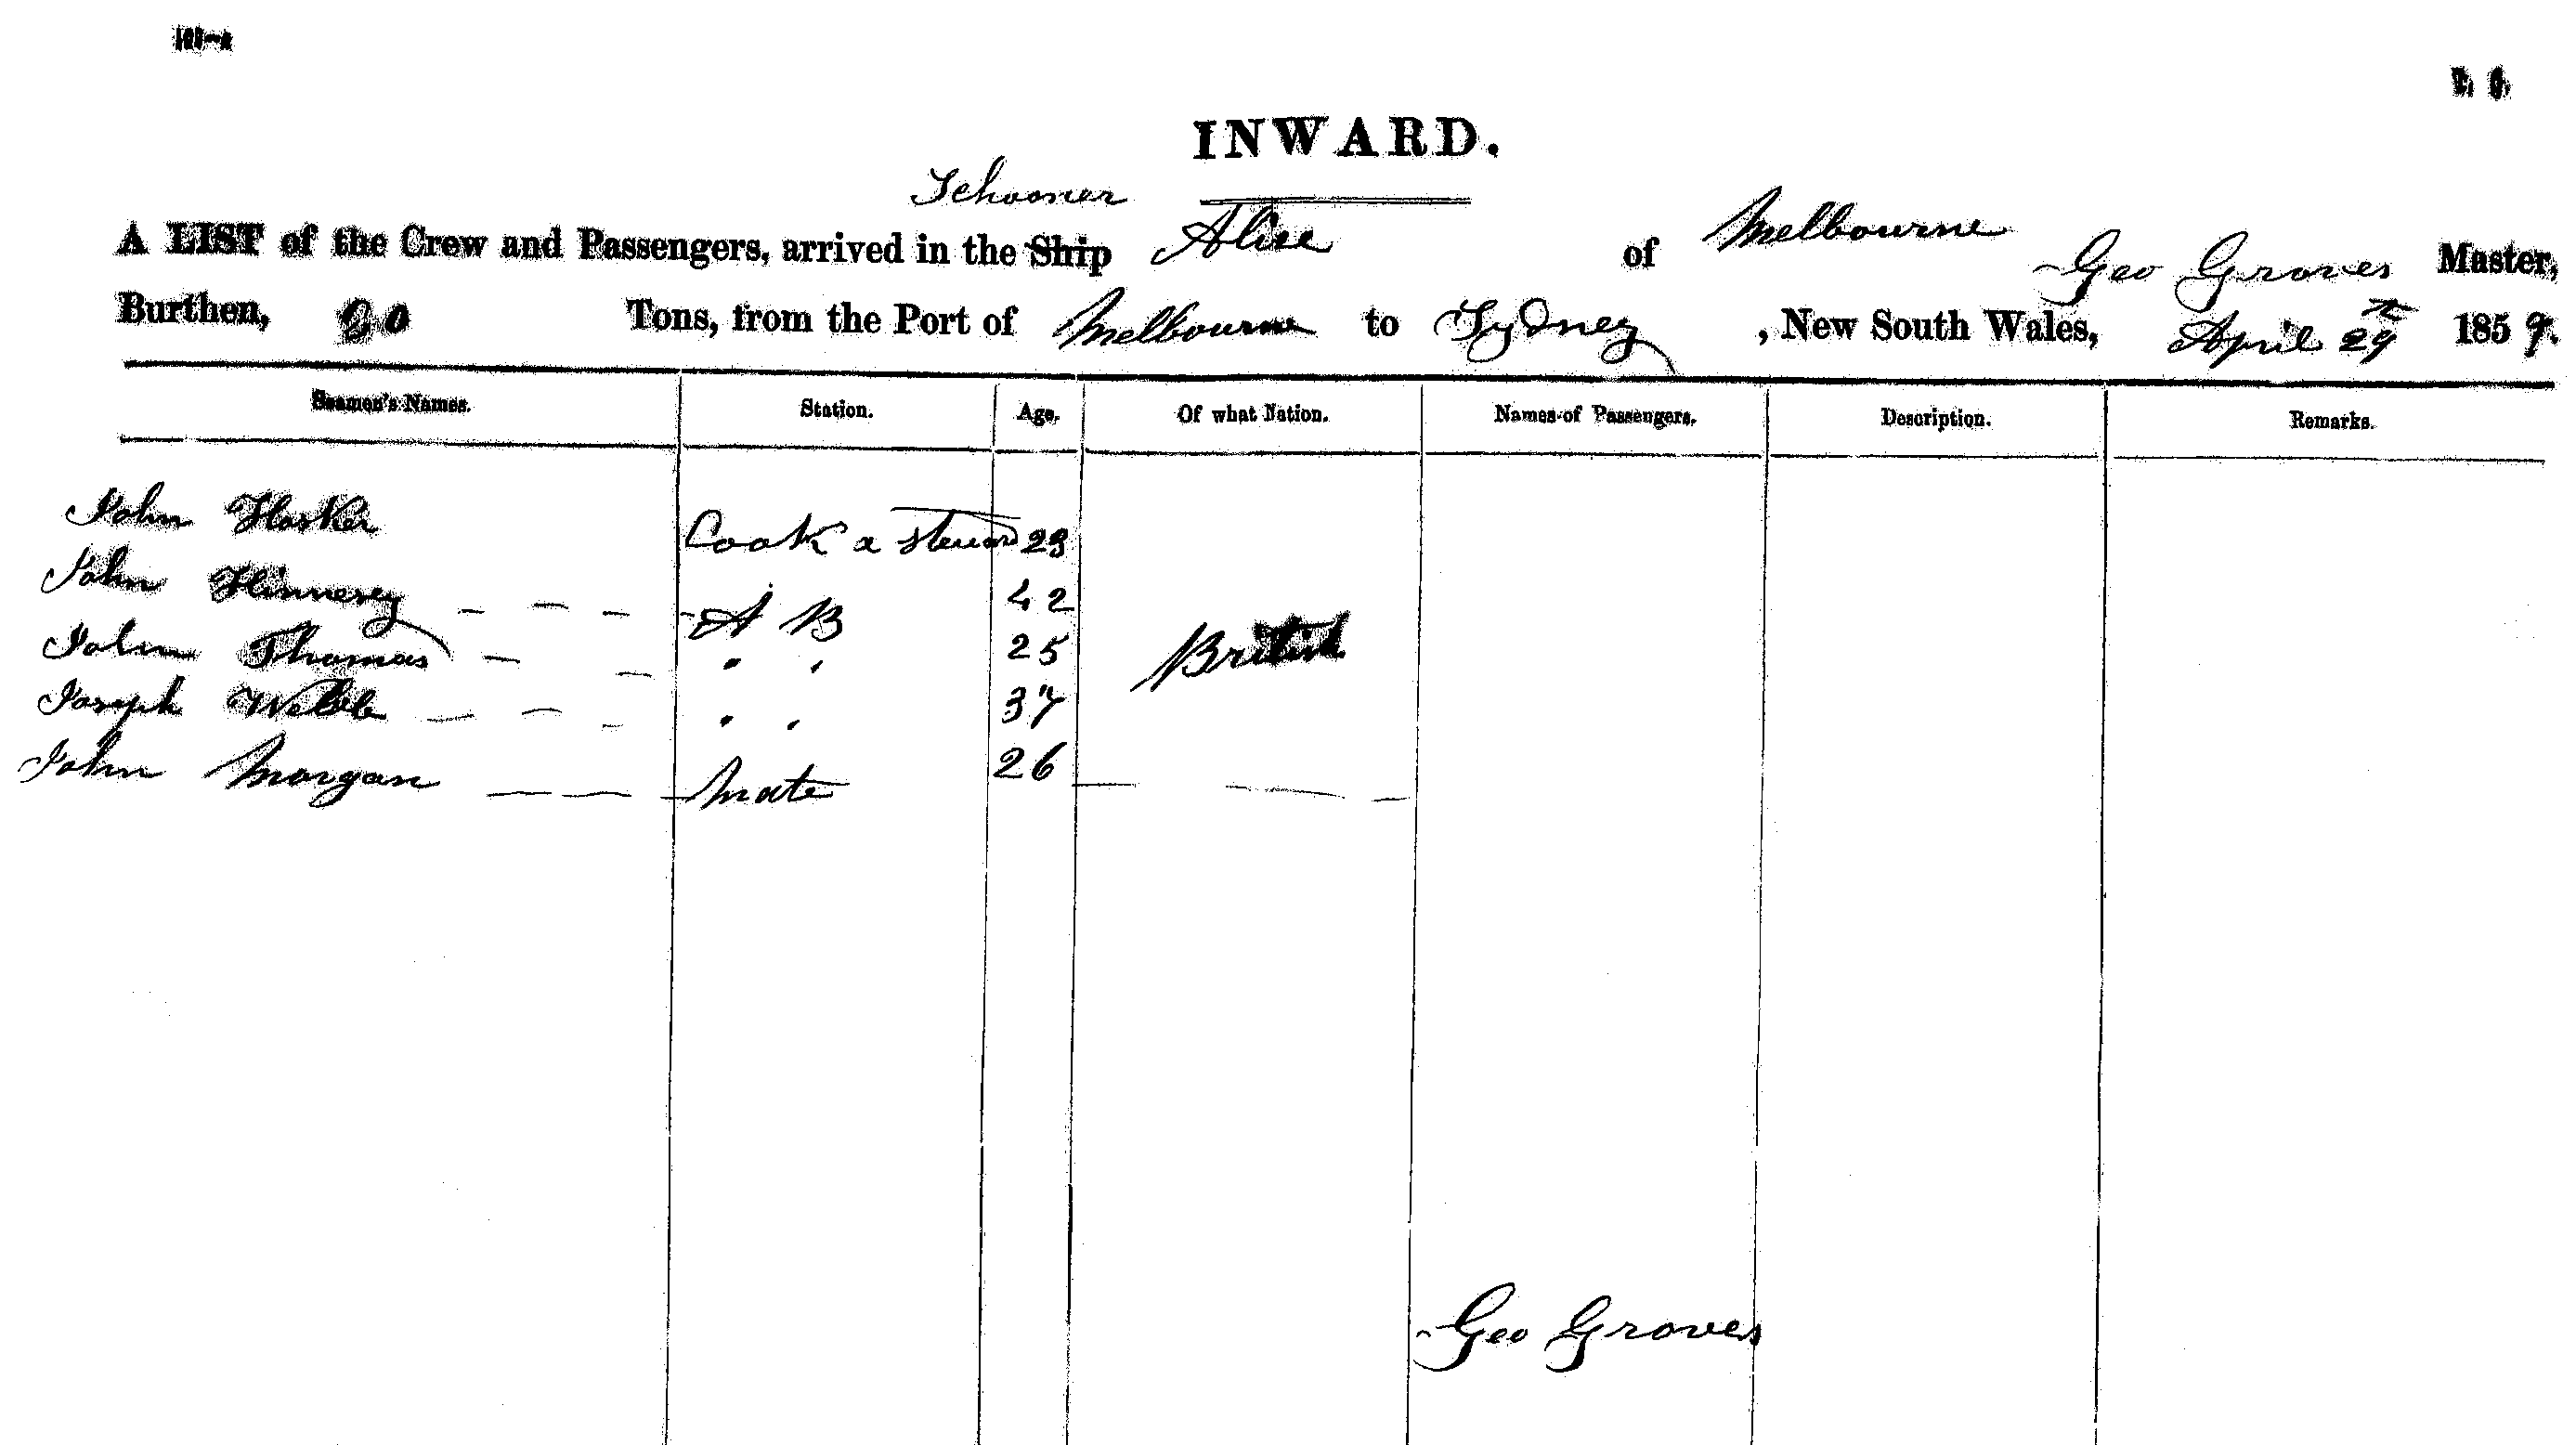 INWARD.
Schooner
A LIST of the Crew and Passengers, arrived in the Ship Alise of Melbourne Geo Groves Master,
Burthen, Tons, from the Port of Melbourne to Sydney , New South Wales, April 29th 1859.
Seamen's Names. Station. Age. Of what Nation. Names of Passengers. Description. Remarks.
John Hosker Cook a Steward 23
John A B 42
John Thomas " " 25 British
Joseph Webb " " 37
John Morgan Mate 26
Geo Groves